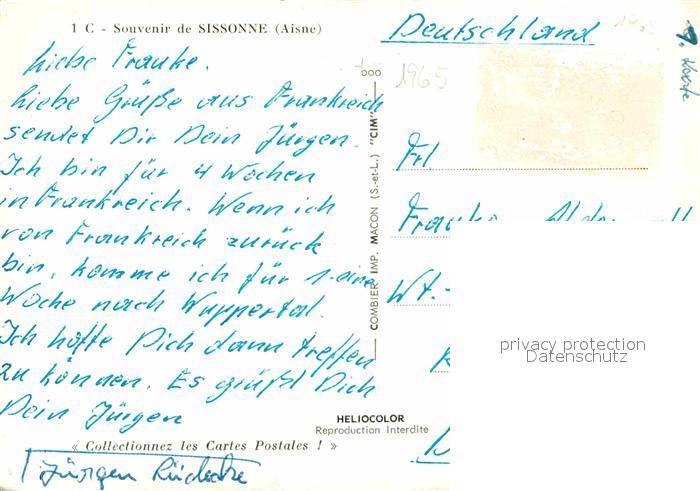 1 C - Souvenir de SISSONNE (Aisne)
Liebe Frauke.
Liebe Grüße aus Frankreich
sendet Dir Dein Jürgen.
Ich bin für 4 Wochen
in Frankreich. Wenn ich
von Frankreich zurück
bin, komme ich für 1-eine
Woche nach Wuppertal.
Ich hoffe Dich dann treffen
zu können. Es grüßt Dich
Dein Jürgen
« Collectionnez les Cartes Postales ! »
Jürgen
COMBIER IMP. MACON (S.-et-L.) "CIM"
HELIOCOLOR
Reproduction Interdite
Deutschland
1965
1965
Karte
Frl
Frauke
Wt.-
privacy protection
Datenschutz